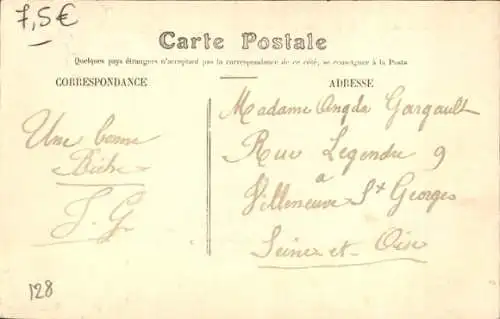 7,5€
Carte Postale
Quelques pays étrangers n'acceptant pas la correspondance de ce côté, se renseigner à la Poste
CORRESPONDANCE
ADRESSE
Une bonne
J. G
Madame Gargault
Rue Legendre 9
a
Villeneuve St Georges
Seine-et-Oise
128